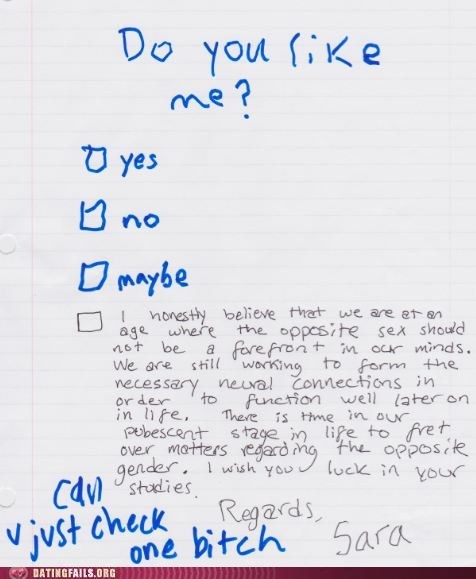 Do you like
me?
yes
no
maybe
I honestly believe that we are at an
age where the opposite sex should
not be a forefront in our minds.
We are still working to form the
necessary neural connections in
order to function well later on
in life. There is time in our
pubescent stage in life to fret
over matters regarding the opposite
gender. I wish you luck in your
studies.
Regards,
Sara
Can
u just check
one bitch
DATINGFAILS.ORG